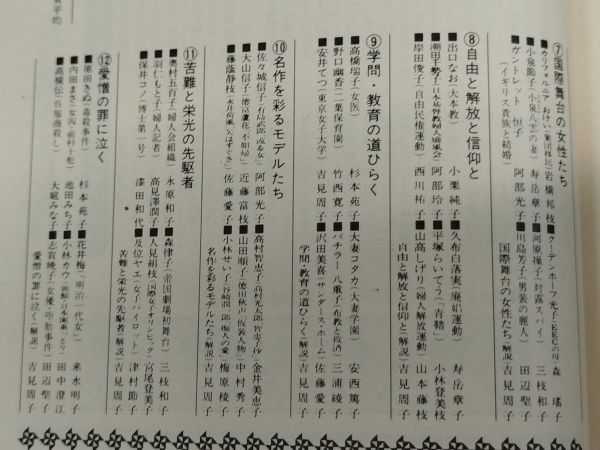 ⑦国際舞台の女性たち
■カリフォルニアおけい(集団移民) 岩橋邦枝
■小泉節子(小泉八雲の妻) 寿岳章子
■ガントレット恒子 阿部光子
(イギリス貴族と結婚)
■クーデンホーフ光子(EECの母) 森瑤子
■河原操子(対露スパイ) 三枝和子
■川島芳子(男装の麗人) 田辺聖子
国際舞台の女性たち(解説) 吉見周子
⑧自由と解放と信仰と
■出口なお(大本教) 小栗純子
■潮田千勢子(日本基督教婦人矯風会) 阿部玲子
■岸田俊子(自由民権運動) 西川祐子
■久布白落実(廃娼運動) 寿岳章子
■平塚らいてう(青鞜) 小林登美枝
■山高しげり(婦人解放運動) 山本藤枝
自由と解放と信仰と(解説) 吉見周子
⑨学問・教育の道ひらく
■高橋瑞子(女医) 杉本苑子
■野口幽香(二葉保育園) 竹西寛子
■安井てつ(東京女子大学) 吉見周子
■大妻コタカ(大妻学園) 安西篤子
■バチラー八重子(布教と救済) 三浦綾子
■沢田美喜(サンダースホーム) 佐藤愛子
学問・教育の道ひらく(解説) 吉見周子
⑩名作を彩るモデルたち
■佐々城信子(有島武郎「或る女」) 阿部光子
■大山信子(徳富蘆花「不如帰」) 近藤富枝
■藤蔭静枝(永井荷風「矢はずぐさ」) 佐藤愛子
■高村智恵子(高村光太郎「智恵子抄」) 金井美恵子
■山田順子(徳田秋声「仮装人物」) 中村秀子
■小林せい子(谷崎潤一郎「痴人の愛」) 梅原稜子
名作を彩るモデルたち(解説) 吉見周子
⑪苦難と栄光の先駆者
■奥村五百子(婦人会組織) 永原和子
■羽仁もと子(婦人記者) 高見澤潤子
■保井コノ(博士第一号) 漆田和代
■森律子(帝国劇場初舞台) 三枝和子
■人見絹枝(国際女子オリンピック) 宮尾登美子
■及位ヤエ(女パイロット) 津村節子
苦難と栄光の先駆者(解説) 吉見周子
⑫愛憎の罪に泣く
■原田きぬ(毒殺事件) 杉本苑子
■内田まさ(女囚・前科十犯) 池田みち子
■高橋伝 大堀みな子
■花井梅(明治一代女) 来水明子
■小林カウ 田中澄江
■志賀暁子(女優・堕胎事件) 田辺聖子
愛憎の罪に泣く(解説) 吉見周子